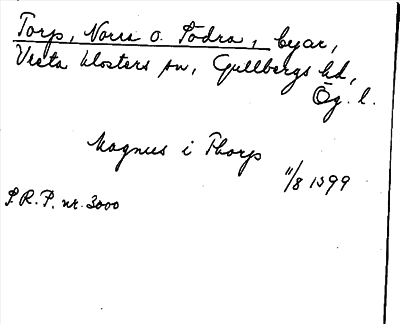 Torp, Norra o. Södra, byar,
Vreta klosters sn, Gullbergs hd,
Ög. l.
Magnus i Thorp
11/8 1399
S.R.P. nr. 3000